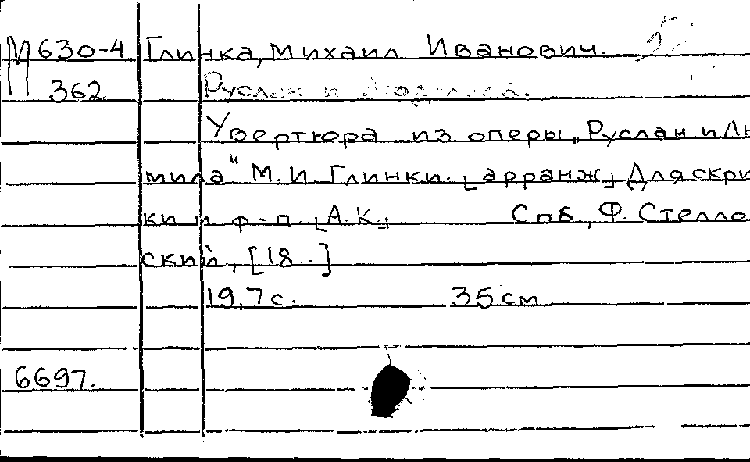 М 630-4 Глинка, Михаил Иванович.
362 Руслан и Людмила.
Увертюра из оперы „Руслан и Лю
мила" М.И. Глинки. [арранж] Для скри
ки и ф-п. [А.К.] Спб, Ф. Стелло
ский, [18 .]
19,7 с. 35 см
6697.